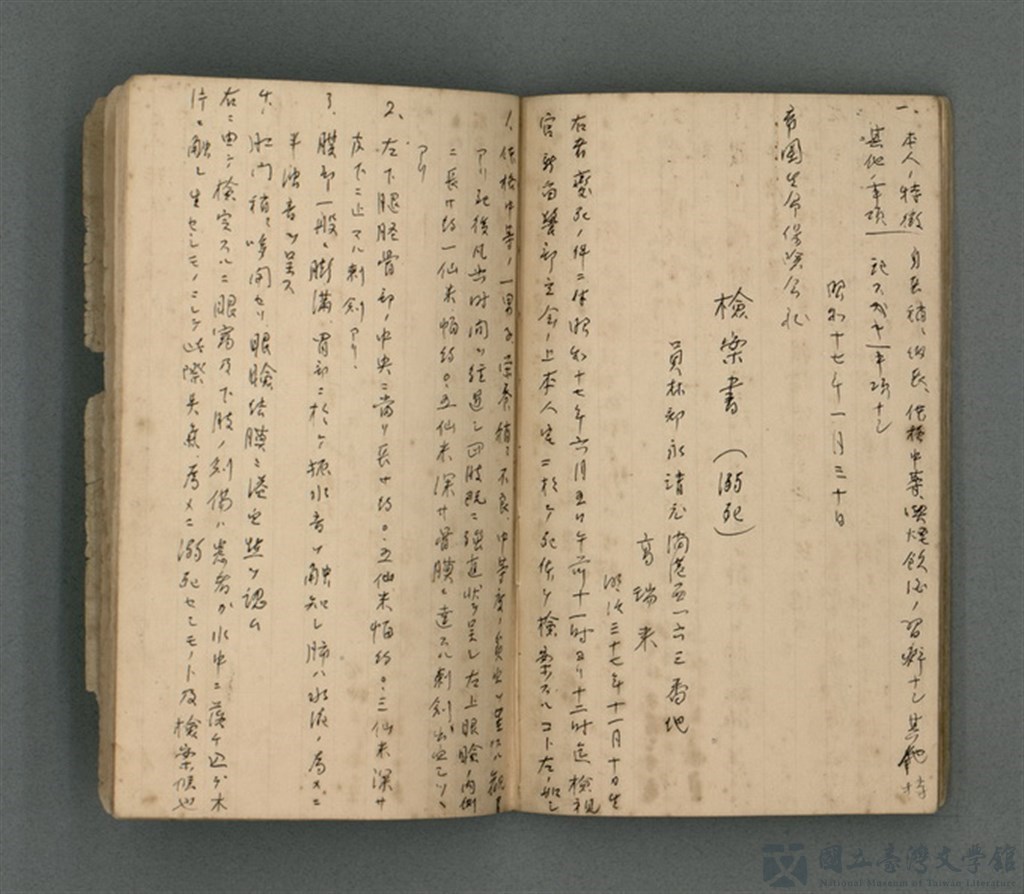 一、本人ノ特徴 身長稍々細長、体格中等、喫煙飲酒ノ習癖ナシ 其他特
其他ノ事項 記スベキ事項ナシ
昭和十七年一月三十日
帝国生命保険会社
検案書（溺死）
員林郡永靖庄湳港西一六三番地
高瑞来
明治三十七年十一月十日生
右者変死ノ件ニ依昭和十七年六月五日午前十一時ヨリ十二時迄検視
官 警部立会ノ上本人宅ニ於テ死体ヲ検案スルコト左ノ如シ
1、体格中等ノ一男子、栄養稍々不良、中等度ノ貧血ヲ
アリ死後凡 時間ヲ経過シ四肢既ニ強直状ヲ呈シ左上眼瞼ノ内側
ニ長サ約一仙米幅約〇.五仙米深サ骨膜ニ達スル刺創
アリ
2、左下腿脛骨部ノ中央ニ当リ長サ約〇.五仙米幅約〇.三仙米深サ
皮下ニ止マル刺創アリ.
3、腹部一般ニ膨満、胃部ニ於テ振水音ヲ触知シ肺ハ水液ノ為メニ
半濁音ヲ呈ス
4、肛門稍々哆開セリ、眼瞼結膜ニ溢血点ヲ認ム
右ニ由テ検定スルニ眼窩及下肢ノ創傷ハ患者ガ水中ニ落チ込ヲ木
片ニ触レ生セシモノニシテ此際 為メニ溺死セシモノト及検案候也
國立臺灣文學館
National Museum of Taiwan Literature